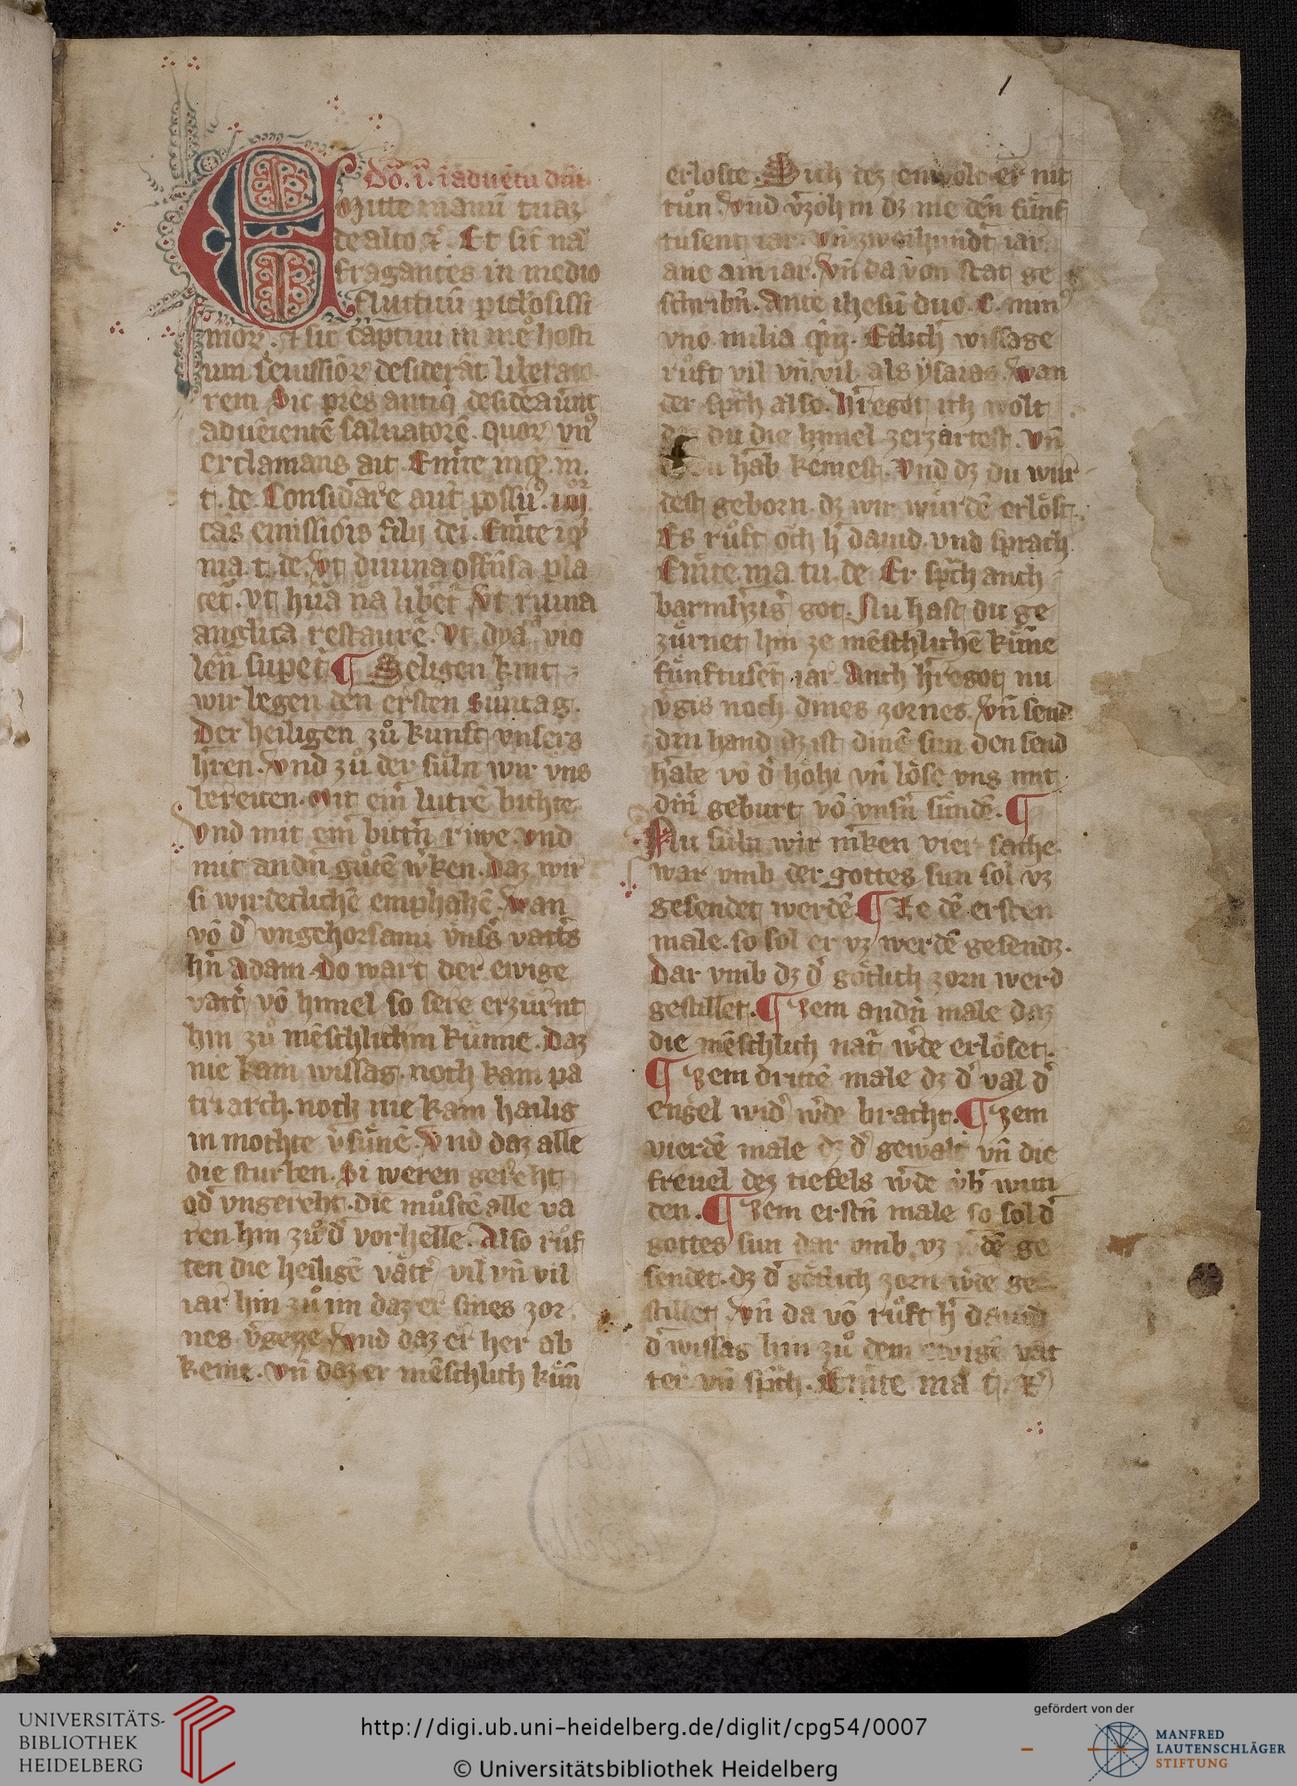 1
Dō. i. i aduētu dn̄i
Emitte manū tuaz
de alto ⁊c̄. Et sic̄ na
fragantes in medio
fluctuū ꝑic̄losissi
moꝝ. ⁊ sic̄ captiui in
rem Sic pr̄es antiq̄ desid̾au̾nt
aduēientē saluatorē. quoꝝ vn̾
exclamans ait. Emitte inq̄ m.
t. de. Considare aut̄ possum̾. iiij
cas emissiōis filij dei. Emitte iq̄
ma. t. de. Vt diuina offēsa pla
cet̄. vt hūa na lib̾et̄ Vt ruina
anglica restauret̄. Vt dya
lēn̄ supet̄ ¶ Seligen kint
wir legen den ersten suntag.
Der heiligen zů kunft vnsers
h̾ren. Vnd zů der süln wir vns
bereiten. Mit eim̄ lutrē bichte
vnd mit eim̄ bittn̄ riwe. vnd
mit andn̄ gůtē w̾ken. Daz wir
si wirdeclichē emphahē. Wan
vō d̾ vngehorsami vns̾s vatt̾s
h̾n Adam. Do wart der ewige
vatt̾ vō himel so sere erzürnt
hin zů mēschlichm künne. Daz
nie kam wissag. noch kam pa
triarch. noch nie kam hailig
in mochte v̾sūnē. Vnd daz alle
die sturben. Si weren gereht
od̾ vngereht. die můstē alle va
ren hin zů d̾ vorhelle. Also růf
ten die heiligē vätt̾ vil vn̄ vil
iar hin zů im daz er sines zor
nes v̾geze. Vnd daz er her ab
keme. Vn̄ daz er mēschlich kün̄
erloste. Sich dez enwolt er nit
tůn. Vnd v̾zoh in dz me dēn fünf
tusent iar. vn̄ zweihundt̾ iar
ane ain iar. Vn̄ da von stat ge
schribn̄. Ante ihesū duo. C. min̾
vno milia Etlich wissage
růft vil vn̄ vil. als ysaias. wan
der sp̄ch also. h̾regot ich wolt
du die himel zerzartest. vn̄
du h̾ab kemest. Vnd dz du wur
dest geborn. dz wir wurdē erlöst.
Es růft och h̾ dauid. vnd sprach
Emitte. ma. tu. de Er sp̄ch auch
barmh̾zig̾ got. Nu hast du ge
zürnet hin ze mēschlichē künne
fünftusēt iar. Auch h̾regot nu
v̾gis noch dines zornes. Vn̄ send
din hand dz ist dinē sun. den send
h̾ale vō d̾ höhi vn̄ löse vns mit
din̄ geburt vō vnsn̄ sündē. ¶
Nu süln wir m̾ken vier sache.
war vmb der gottes sun sol vz
gesendet werdē. ¶ Ze dē ersten
male. so sol er vz werdē gesendz.
Dar vmb dz d̾ götlich zorn werd
gestillet. ¶ Zem andn̄ male daz
die mēschlich nat̾ w̾de erlöset.
¶ Zem drittē male dz d̾ val d̾
engel wid̾ w̾de bracht. ¶ Zem
vierdē male dz d̾ gewalt vn̄ die
freuel dez tiefels w̾de vb̾ wun
den. ¶ Zem erstn̄ male so sol d̾
gottes sun dar vmb vz w̾dē ge
sendet. dz d̾ götlich zorn w̾de ge
stillet. Vn̄ da vō růft h̾ dauid
d̾ wissag hin zů dem ewigē vat
ter vn̄ sp̄ch. Emitte ma t. ⁊c̄
UNIVERSITÄTS-
BIBLIOTHEK
HEIDELBERG
http://digi.ub.uni-heidelberg.de/diglit/cpg54/0007
© Universitätsbibliothek Heidelberg
gefördert von der
MANFRED
LAUTENSCHLÄGER
STIFTUNG